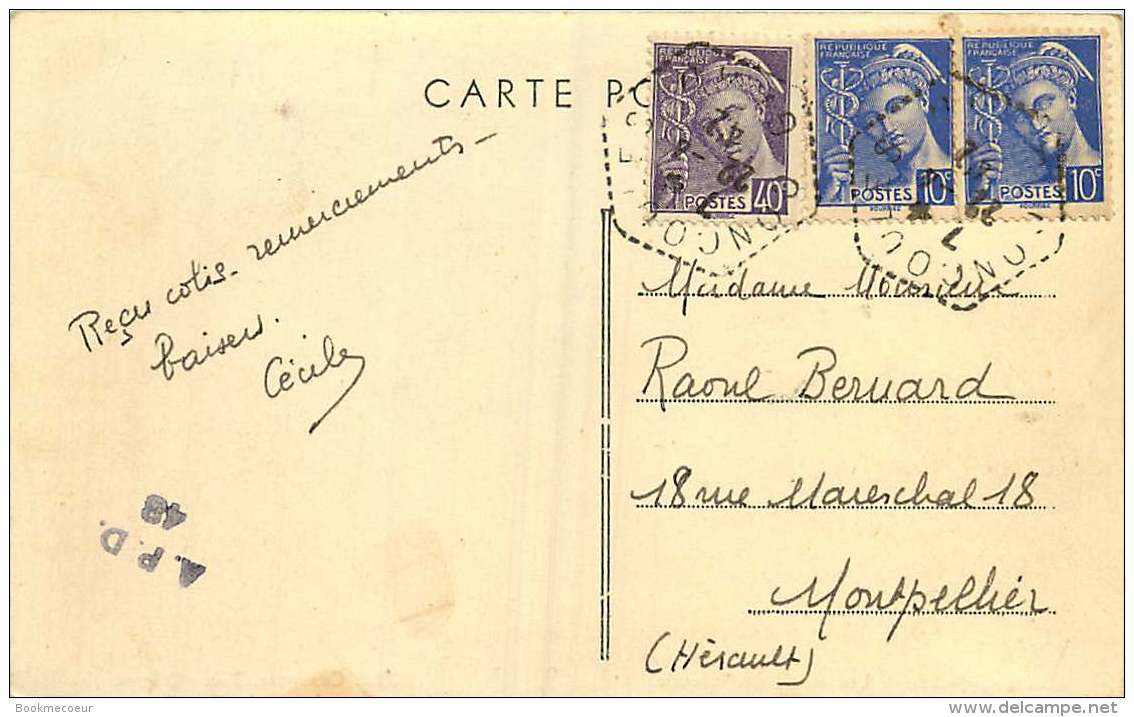 CARTE PO
RÉPUBLIQUE
FRANÇAISE
POSTES 40c
RÉPUBLIQUE
FRANÇAISE
POSTES 10c
RÉPUBLIQUE
FRANÇAISE
POSTES 10c
Reçu cotis. remerciements -
baisers.
Cécile
A.P.D.
48
Madame Monsieur
Raoul Bernard
18 rue Mareschal 18
Montpellier
(Hérault)
Bookmecoeur
www.delcampe.net